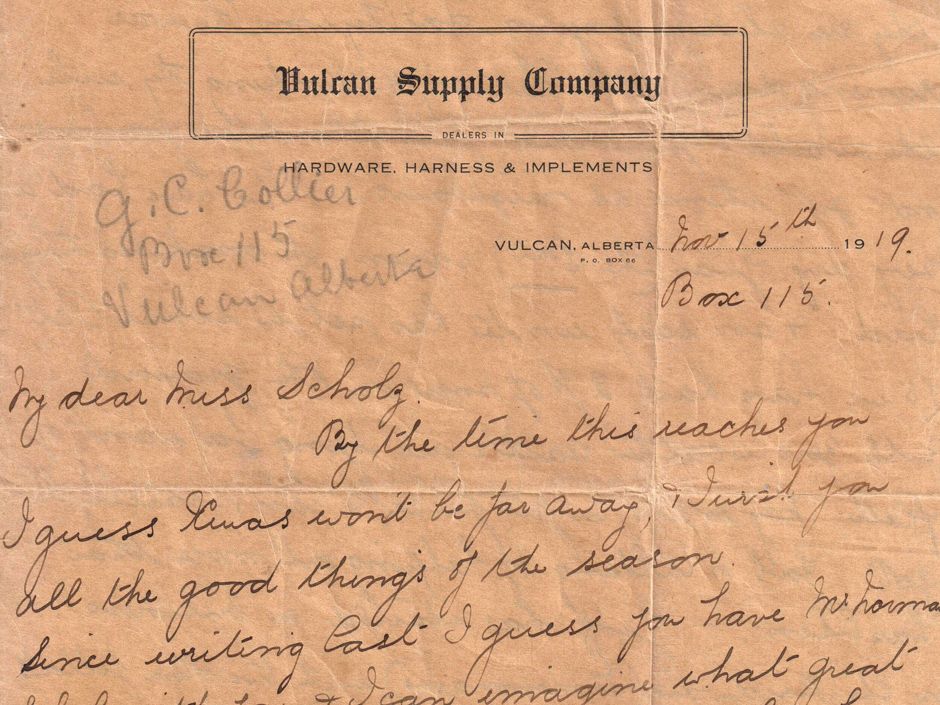 Vulcan Supply Company
DEALERS IN
HARDWARE, HARNESS & IMPLEMENTS
G. C. Collier
Box 115
Vulcan Alberta
VULCAN, ALBERTA Nov 15th 1919.
P. O. BOX 66
Box 115.
My dear Miss Scholz.
By the time this reaches you
I guess Xmas won't be far away, & I wish you
all the good things of the season.
Since writing last I guess you have Mr. Norma
& I can imagine what great